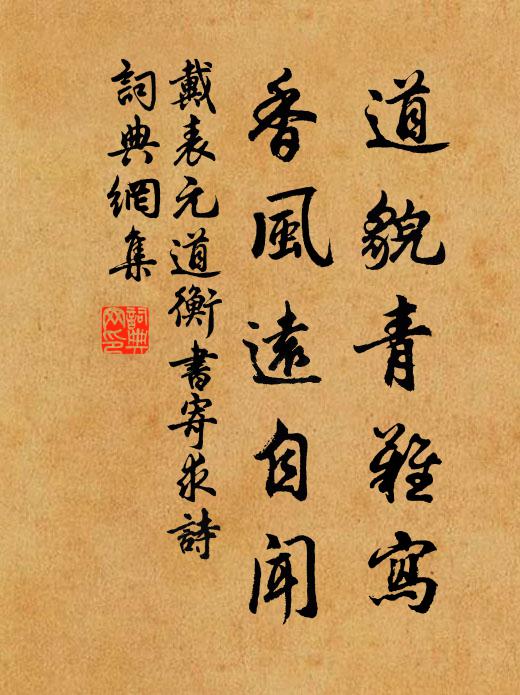 道貌青難寫
香風遠自聞
戴表元道衡書寄求詩
詞典網集
詞典网印